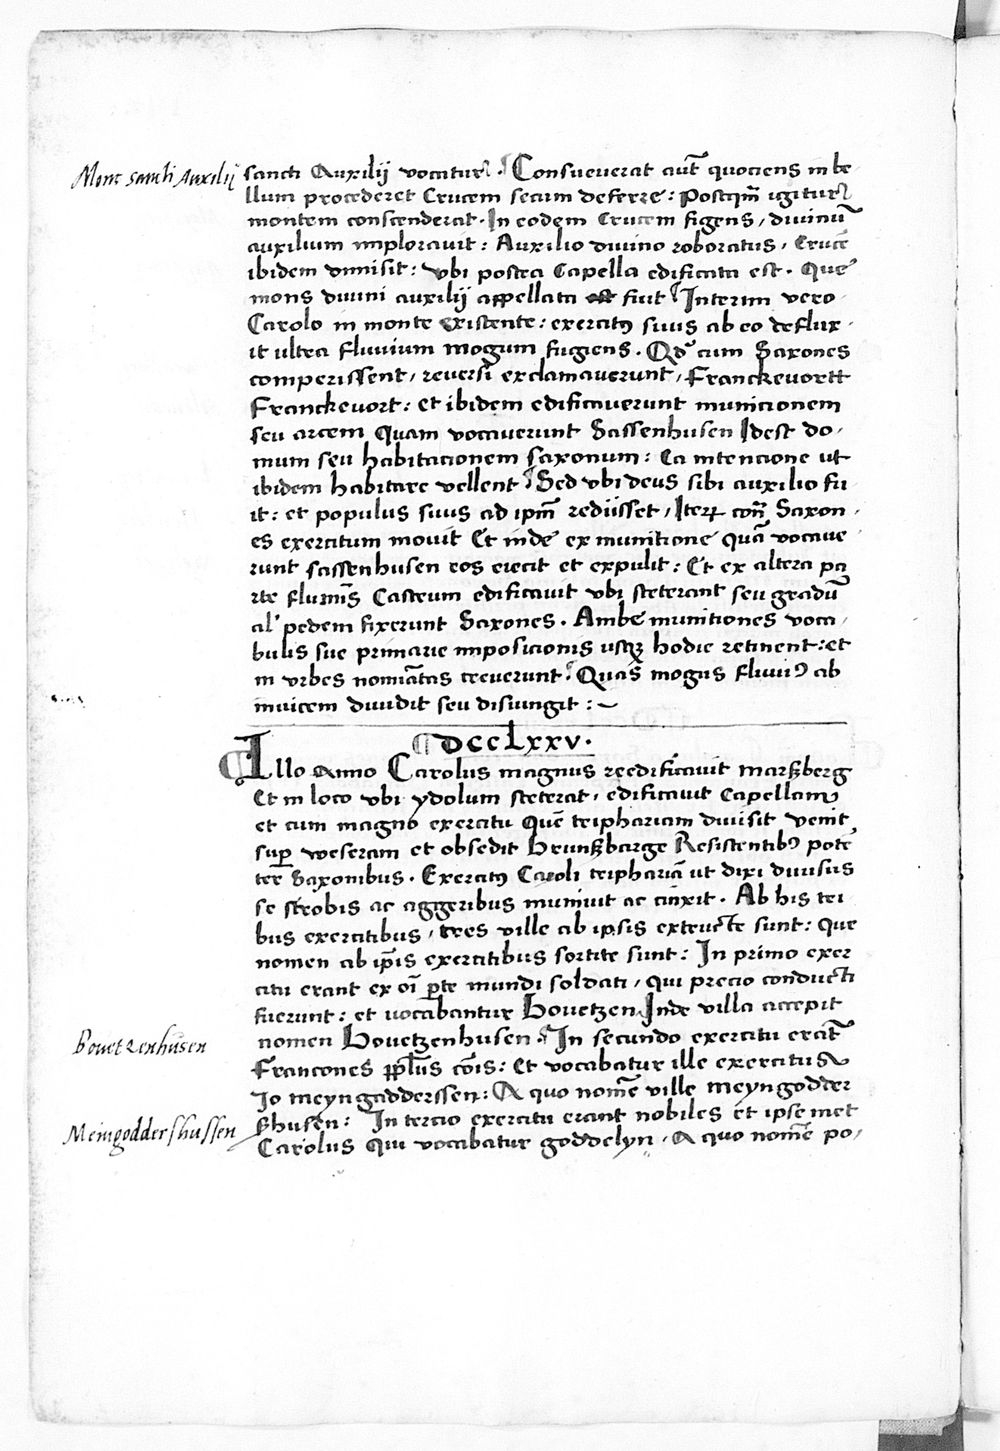 Mons sancti Auxilij
sancti Auxilij vocatur. Consueuerat aut̄ quociens in be-
llum procederet Crucem secum deferre: Postqm̄ igitur
montem conscenderat. In eodem Crucem figens, diuinū
auxilium implorauit: Auxilio diuino roboratus, Crucē
ibidem dimisit: vbi postea Capella edificata est. Que
mons diuini auxilij appellata fuit Interim vero
Carolo in monte existente: exercitꝰ suus ab eo deflux-
it ultra fluuium mogum fugiens. Qd̄ cum Saxones
comperissent, reuersi exclamauerunt, Franckevortt
Franckevort: et ibidem edificauerunt municionem
seu arcem Quam vocauerunt Sassenhusen Idest do-
mum seu habitacionem saxonum: Ea intencione ut
ibidem habitare vellent Sed vbi deus sibi auxilio fu
it: et populus suus ad ipm̄ redijsset, Iteꝝ con̄ Saxon-
es exercitum mouit Et inde ex munitione quā vocaue
runt sassenhusen eos eiecit et expulit: Et ex altera pa
rte flumīs Castrum edificauit vbi steterant seu gradū
al' pedem fixerunt Saxones. Ambe munitiones voca-
bulis sue primarie imposicionis usqꝫ hodie retinent: et
in vrbes nomīatas creuerunt. Quas mogus fluuiꝰ ab
inuicem diuidit seu disiungit:
DCCLXXV.
Illo Anno Carolus magnus reedificauit martzberg
Et in loco vbi ydolum steterat, edificauit Capellam
et cum magno exercitu Quē triphariam diuisit venit
sup̄ weseram et obsedit Bruntzbarge Resistentibꝰ potē
ter Saxonibus. Exercitꝰ Caroli tripharia ut dixi diuisus
se strobis ac aggeribus muniuit ac cinxit. Ab his tri
bus exercitibus, tres ville ab ipsis extructe sunt: Que
nomen ab ip̄is exercitibus sortite sunt: In primo exer
citu erant ex oī p̄te mundi soldati, qui precio conducti
fuerunt: et vocabantur Bouetzen Inde villa accepit
Bouetzenhusen
nomen Bouetzenhusen. In secundo exercitu erāt
Francones pp̄lus cōis: Et vocabatur ille exercitus
Io meyngadderssen: A quo nomē ville meyngodder
Meingoddershussen
ßhusen: In tercio exercitu erant nobiles et ipsemet
Carolus Qui vocabatur goddelyn. A quo nomē po,